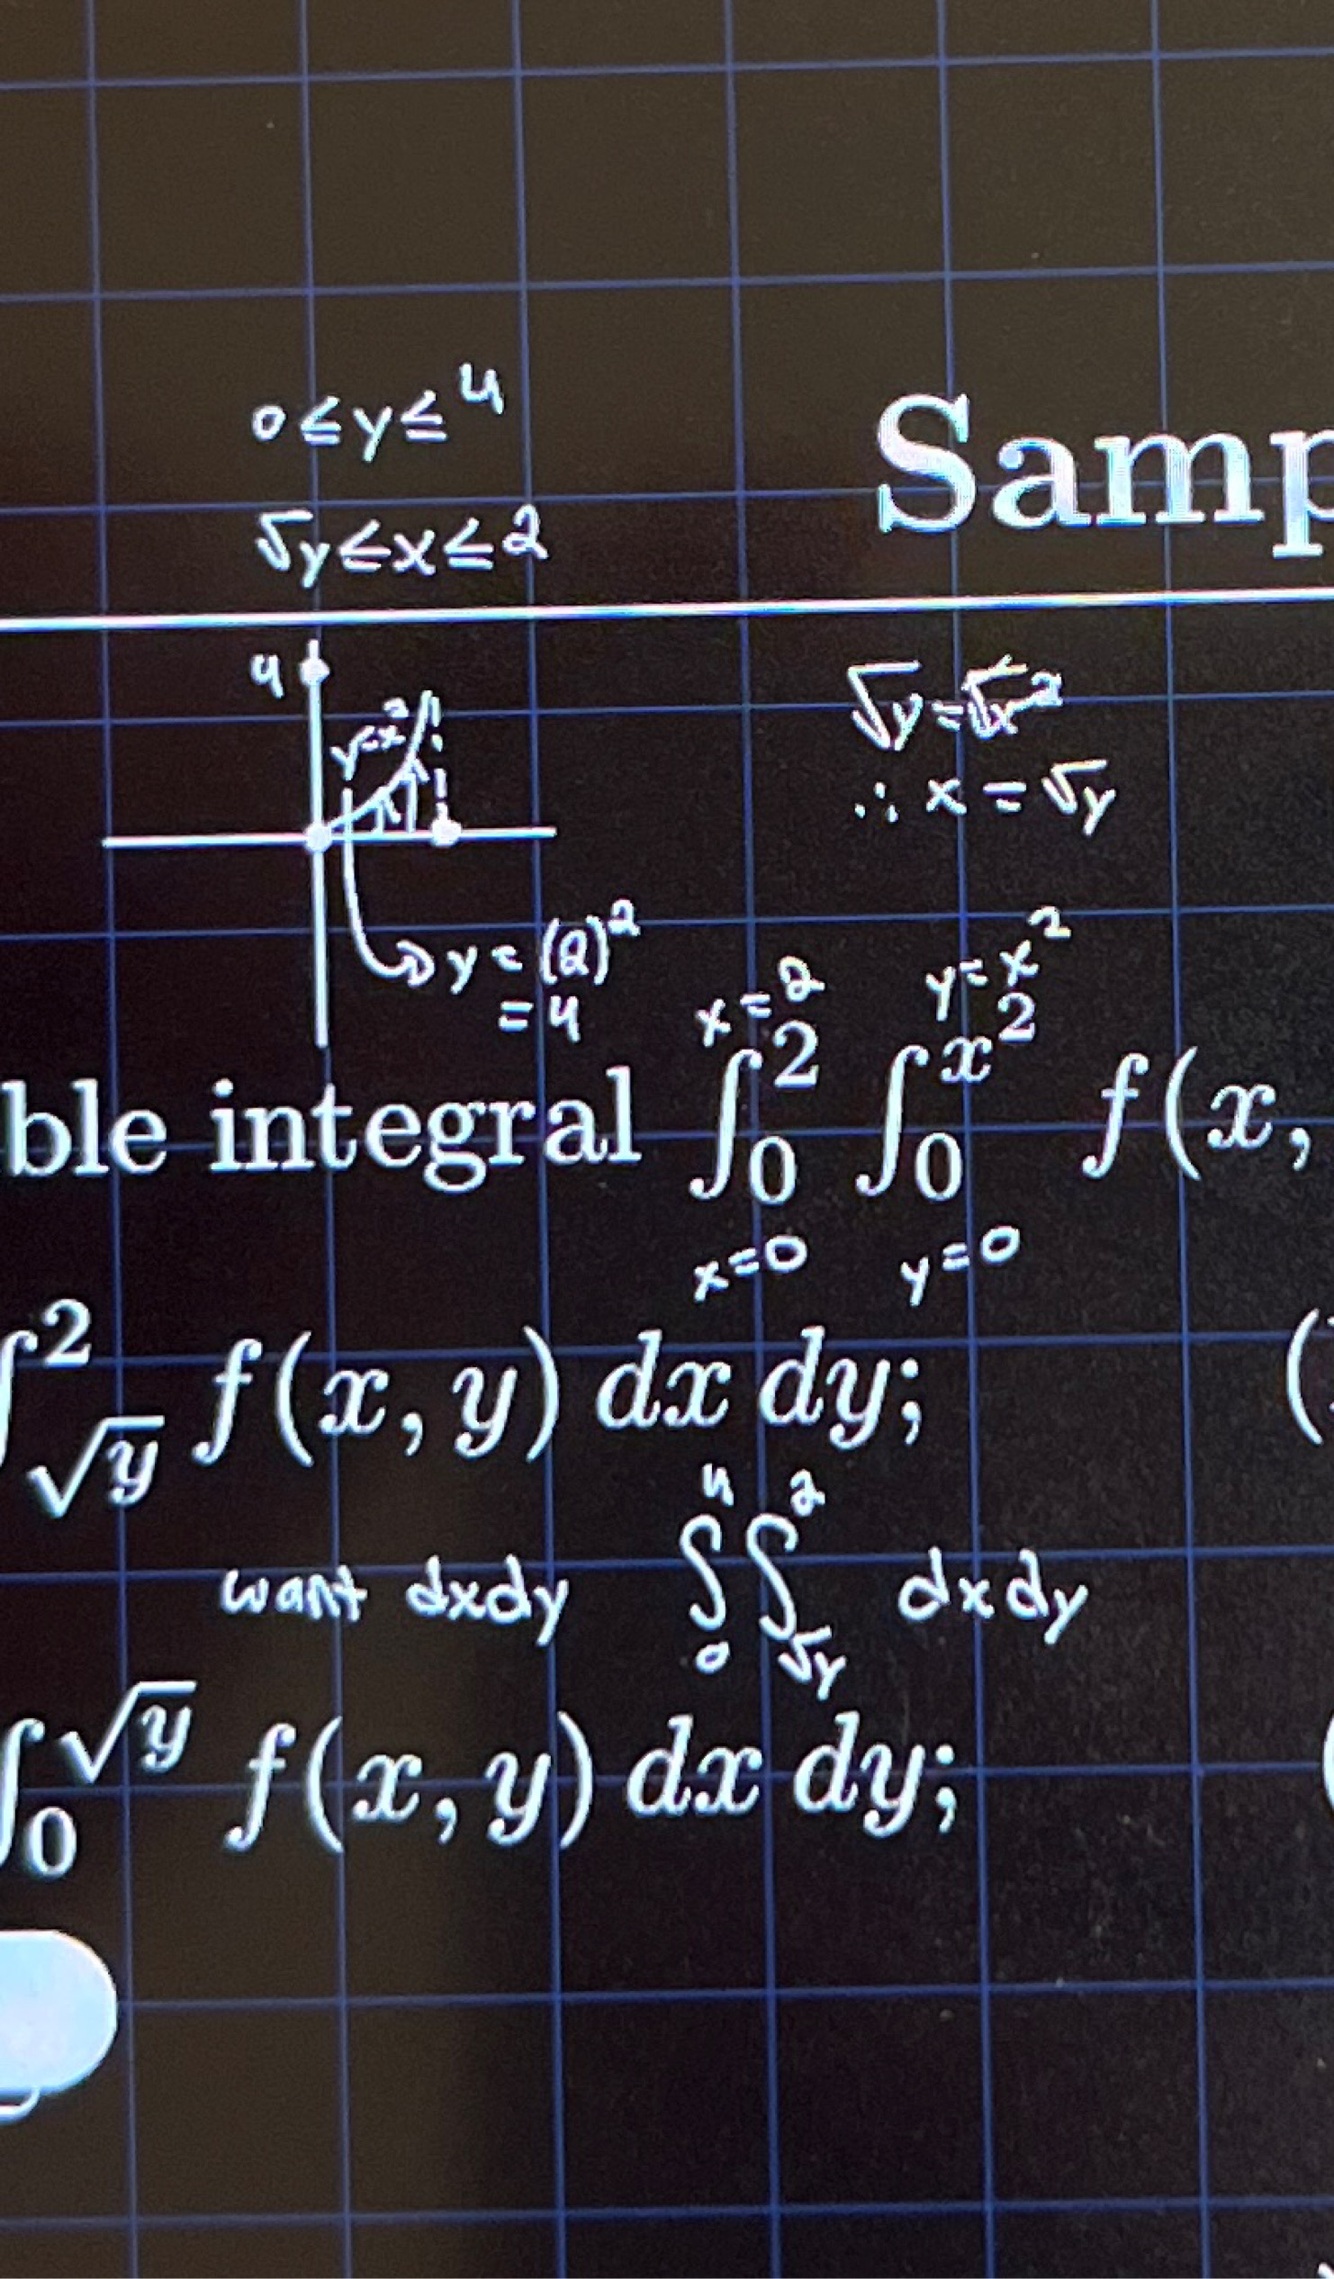 0 ≤ y ≤ 4
√y ≤ x ≤ 2
Samp
4
y=x²
√y = √x²
∴ x = √y
y = (2)²
= 4
x=2 y=x²
ble integral ∫₀² ∫₀^{x²} f(x,
x=0 y=0
∫_{√y}^{2} f(x, y) dx dy; (
want dxdy ∫₀⁴ ∫_{√y}^{2} dxdy
∫₀^{√y} f(x, y) dx dy; (